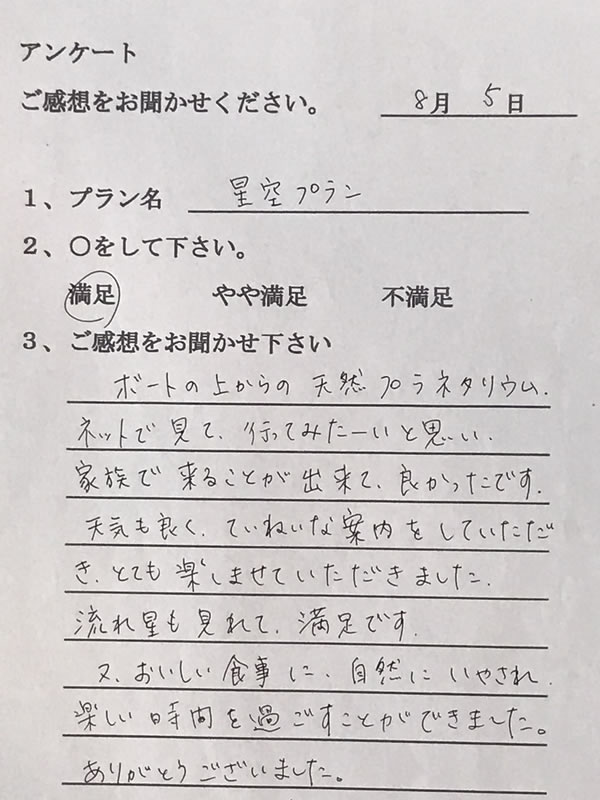 アンケート
ご感想をお聞かせください。 8月 5日
1、プラン名 星空プラン
2、○をして下さい。
満足 やや満足 不満足
3、ご感想をお聞かせ下さい
ボートの上からの天然プラネタリウム.
ネットで見て、行ってみたーいと思い、
家族で来ることが出来て、良かったです.
天気も良く、ていねいな案内をしていただ
き、とても楽しませていただきました.
流れ星も見れて、満足です.
又、おいしい食事に、自然にいやされ、
楽しい時間を過ごすことができました。
ありがとうございました。